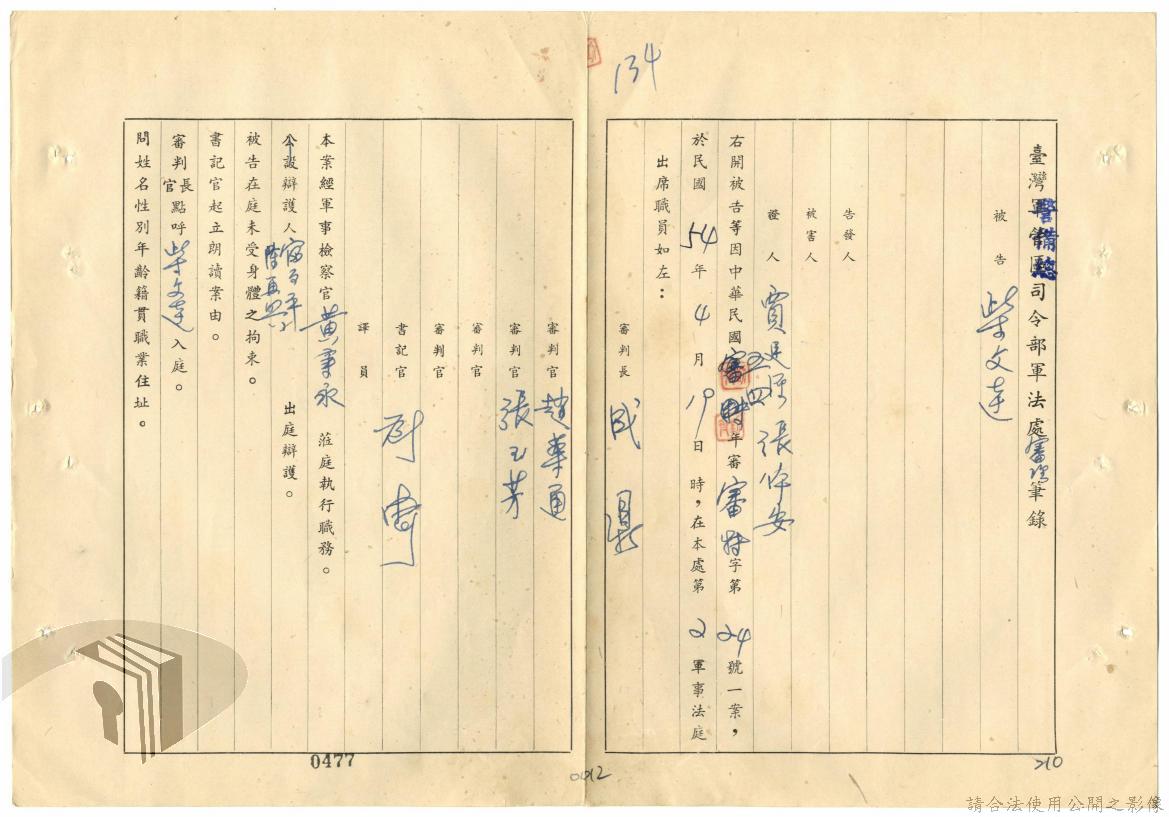 134
臺灣警備總司令部軍法處審判筆錄
被告 柴文達
告發人
被害人
證人 賈廷 張仲安
右開被告等因中華民國五四年審審特字第24號一案，
於民國54年4月19日 時，在本處第2軍事法庭
出席職員如左：
審判長 成鼎
審判官 趙華通
審判官 張玉芳
審判官
審判官
書記官
譯員
本案經軍事檢察官黃秉永 蒞庭執行職務。
公設辯護人 出庭辯護。
被告在庭未受身體之拘束。
書記官起立朗讀案由。
審判長官點呼柴文達入庭。
問姓名性別年齡籍貫職業住址。
210
0012
0477
請合法使用公開之影像